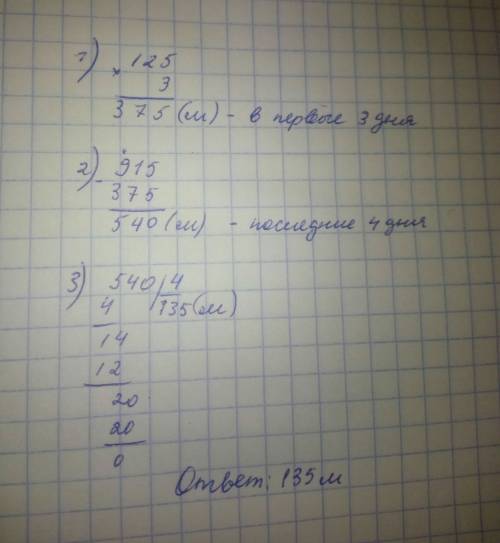 1) × 125
3
375 (м) - в первые 3 дня
2) - 915
375
540 (м) - последние 4 дня
3) 540 | 4
4 135 (м)
14
12
20
20
0
Ответ: 135 м